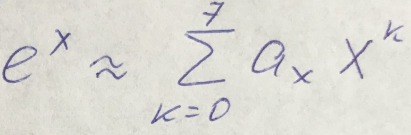 e^x ≈ \sum_{k=0}^{7} a_x x^k